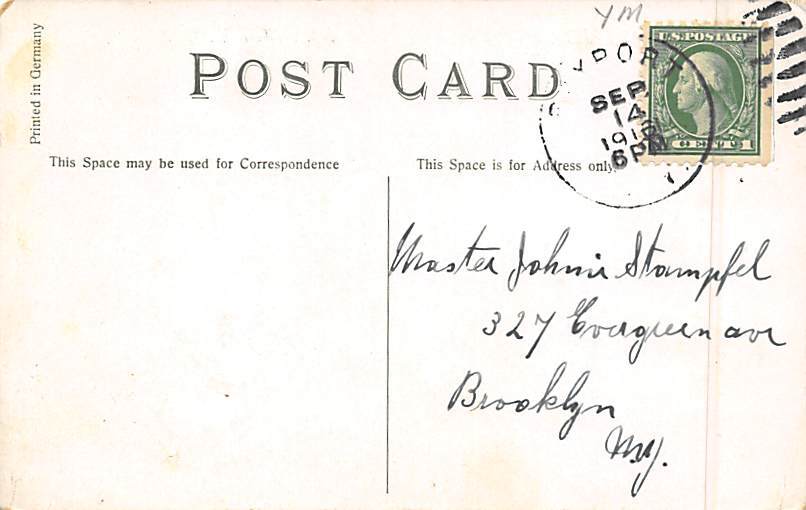 YM
Printed in Germany
POST CARD
U.S. POSTAGE
YPORT
SEP
14
6 PM
CENT 1
This Space may be used for Correspondence
This Space is for Address only.
Master Johnie Stampfel
327 Evergreen ave
Brooklyn
N.Y.